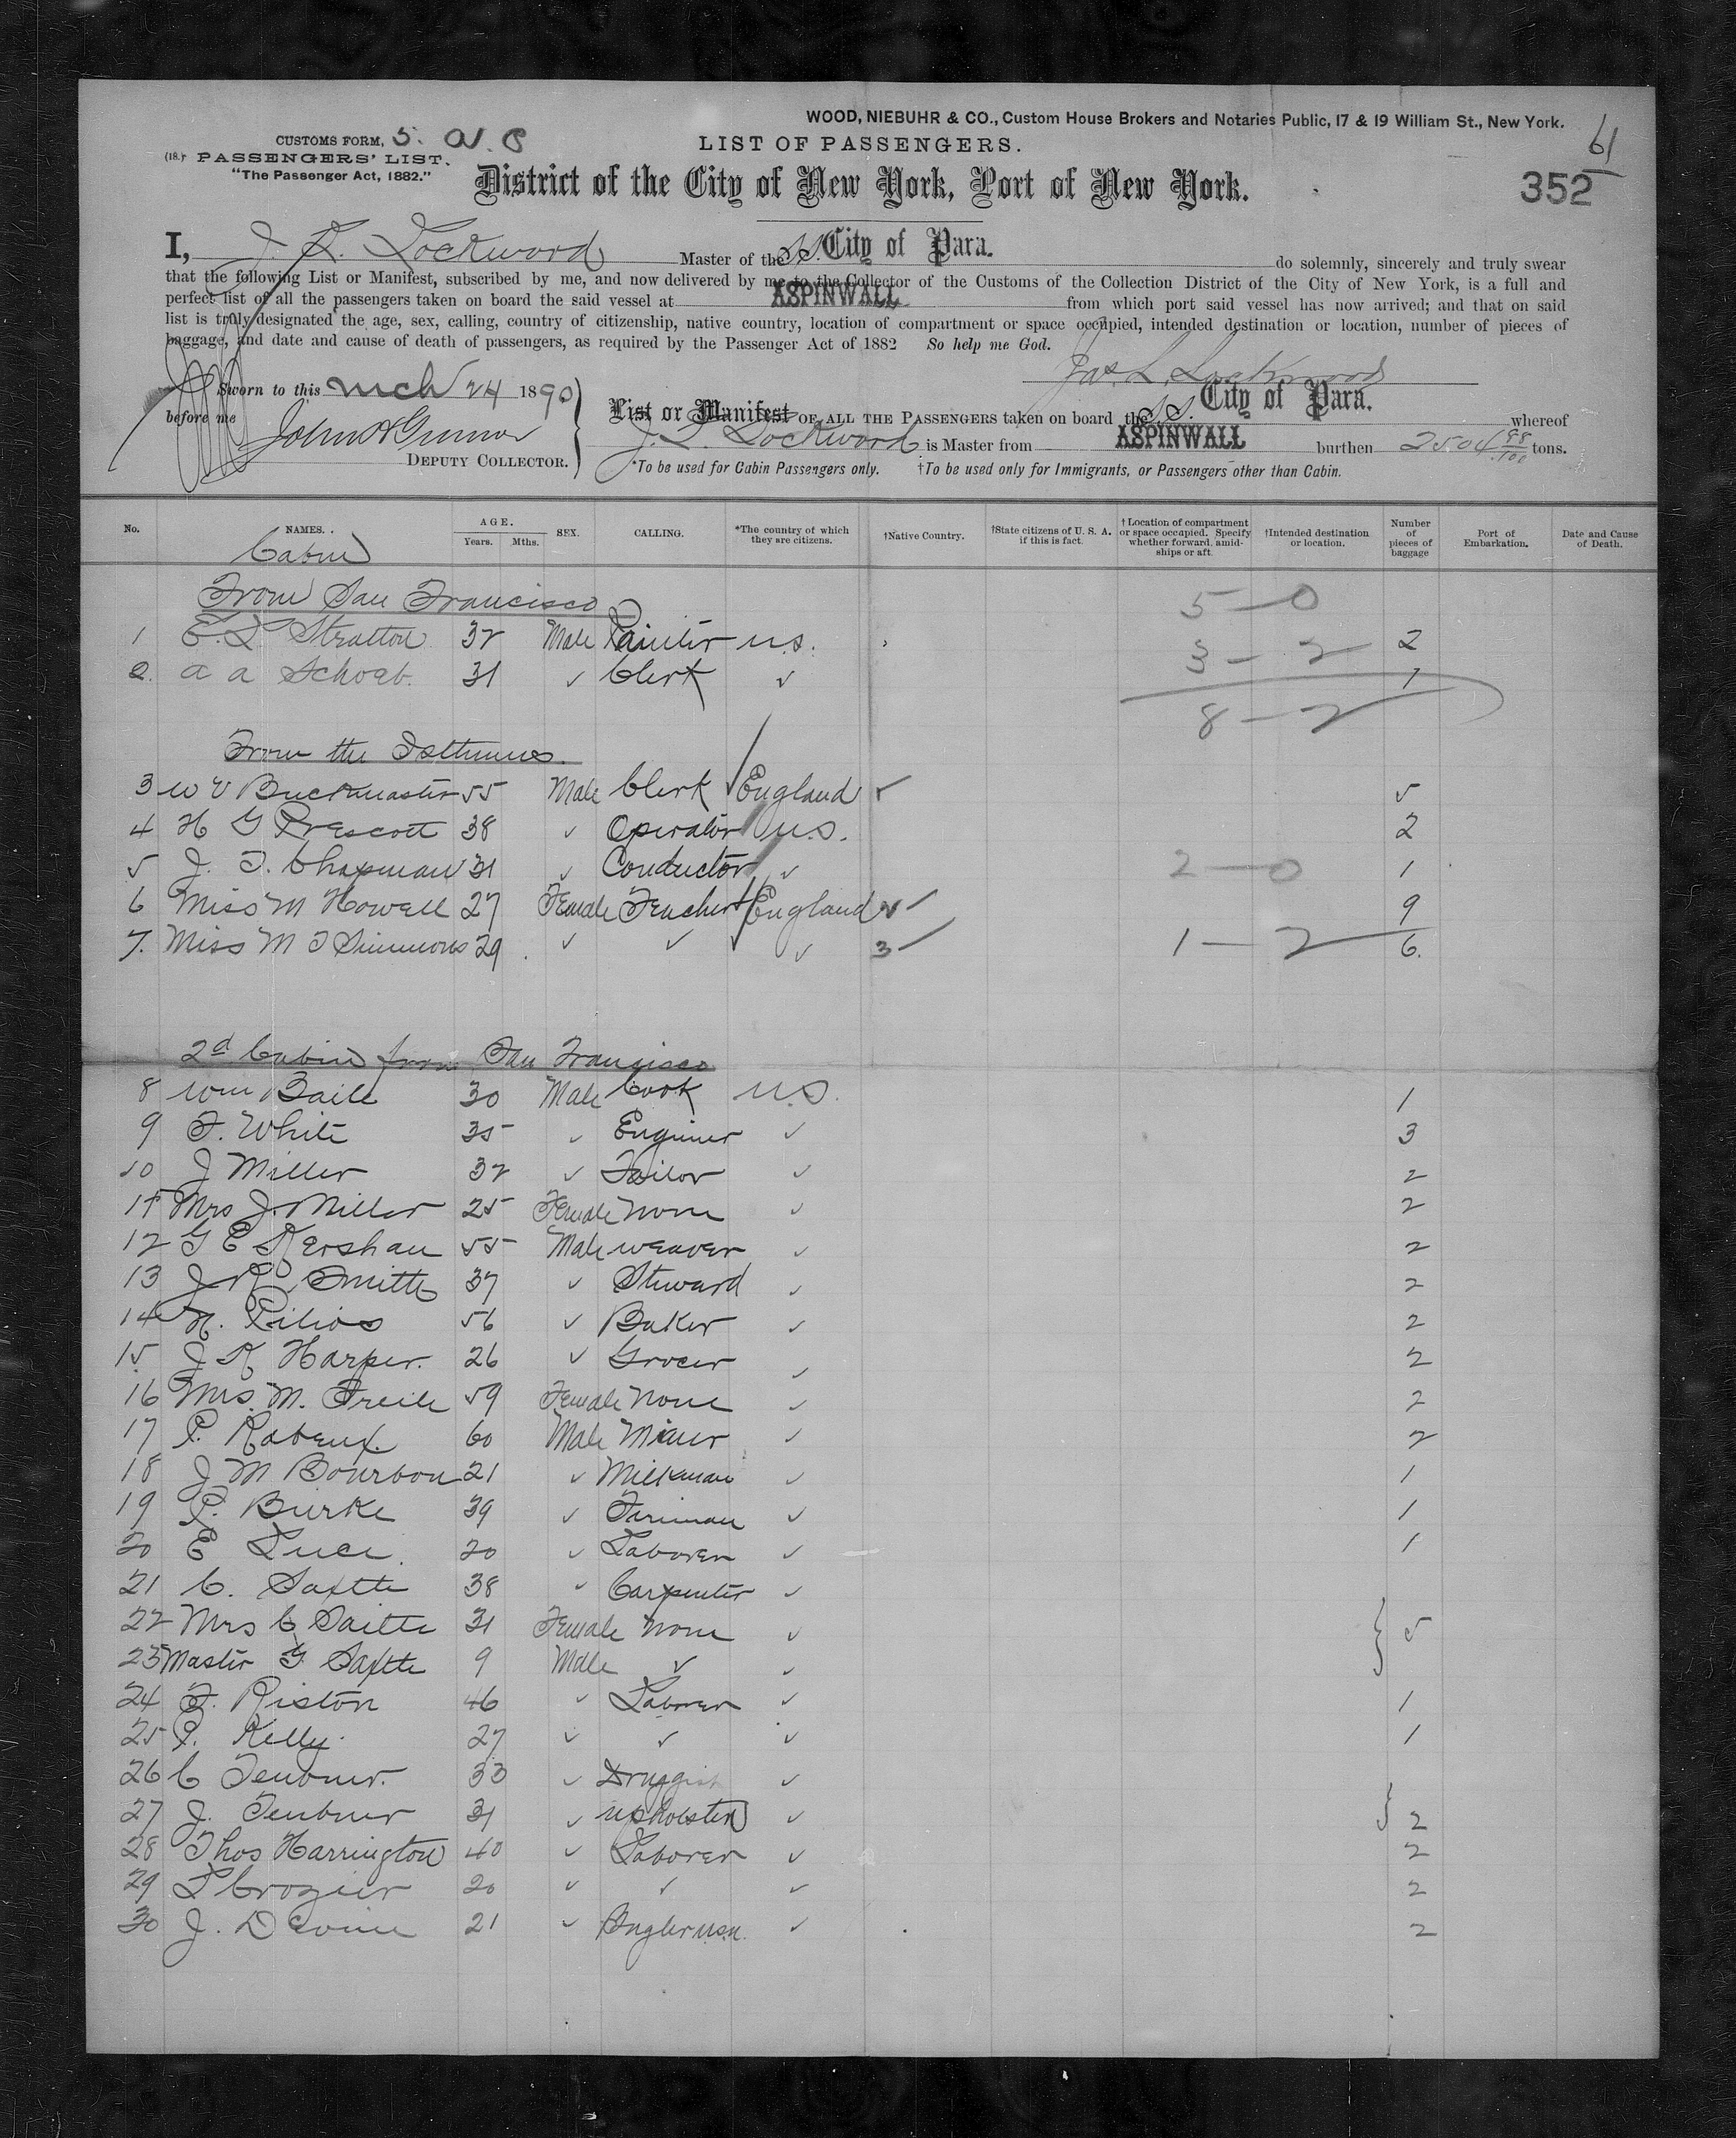 WOOD, NIEBUHR & CO., Custom House Brokers and Notaries Public, 17 & 19 William St., New York.
CUSTOMS FORM, 5.
LIST OF PASSENGERS.
61
(18.) PASSENGERS' LIST.
"The Passenger Act, 1882."
District of the City of New York, Port of New York.
352
I, J. L. Lockwood Master of the SS. City of Para. do solemnly, sincerely and truly swear
that the following List or Manifest, subscribed by me, and now delivered by me to the Collector of the Customs of the Collection District of the City of New York, is a full and
perfect list of all the passengers taken on board the said vessel at ASPINWALL from which port said vessel has now arrived; and that on said
list is truly designated the age, sex, calling, country of citizenship, native country, location of compartment or space occupied, intended destination or location, number of pieces of
baggage, and date and cause of death of passengers, as required by the Passenger Act of 1882 So help me God.
Jas. L. Lockwood
Sworn to this Mch 24 1890
before me
DEPUTY COLLECTOR.
List or Manifest OF ALL THE PASSENGERS taken on board the SS. City of Para. whereof
J. L. Lockwood is Master from ASPINWALL burthen 2504 98/100 tons.
*To be used for Cabin Passengers only. †To be used only for Immigrants, or Passengers other than Cabin.
No. NAMES. AGE. Years. Mths. SEX. CALLING. *The country of which they are citizens. †Native Country. †State citizens of U. S. A. if this is fact. †Location of compartment or space occupied. Specify whether forward, amidships or aft. †Intended destination or location. Number of pieces of baggage Port of Embarkation. Date and Cause of Death.
Cabin
From San Francisco 5 - 0
1 E. L Stratton 32 Male Painter U.S. 3 - 2 2
2. A A Schoab. 31 ✓ Clerk ✓ 1
8 - 2
From the Isthmus.
3 W V Buckmaster 55 Male Clerk England ✓ 5
4 H G Prescott 38 ✓ Operator U.S. 2
5 J. T. Chapman 31 ✓ Conductor ✓ 2 - 0 1
6 Miss M Howell 27 Female Teacher England ✓ 9
7. Miss M T Simmons 29 ✓ ✓ ✓ 3 1 - 2 6.
2d Cabin from San Francisco
8 Wm Baile 30 Male Cook U.S. 1
9 F. White 35 ✓ Enginer ✓ 3
10 J Miller 32 ✓ Tailor ✓ 2
11 Mrs J. Miller 25 Female None ✓ 2
12 G E Kershau 55 Male Weaver ✓ 2
13 J K Smith 37 ✓ Steward ✓ 2
14 N. Pilios 56 ✓ Baker ✓ 2
15. J K Harper. 26 ✓ Grocer ✓ 2
16 Mrs. M. Freile 59 Female None ✓ 2
17 P. Rabeux. 60 Male Miner ✓ 2
18 J M Bourbon 21 ✓ Milkman ✓ 1
19 P. Burke 39 ✓ Fireman ✓ 1
20 E Luce. 20 ✓ Laborer ✓ 1
21 C. Saftte 38 ✓ Carpenter ✓
22 Mrs C Saitte 31 Female None ✓ } 5
23 Master G Saftte 9 Male ✓ ✓
24 F. Riston 46 ✓ Laborer ✓ 1
25 P. Kelly. 27 ✓ ✓ ✓ 1
26 C Teubner. 33 ✓ Druggist ✓
27 J. Teubner 31 ✓ Upholster ✓ } 2
28 Thos Harrington 40 ✓ Laborer ✓ 2
29 L Crozier 20 ✓ ✓ ✓ 2
30 J. Devine 21 ✓ Bugler U.S.N. ✓ 2